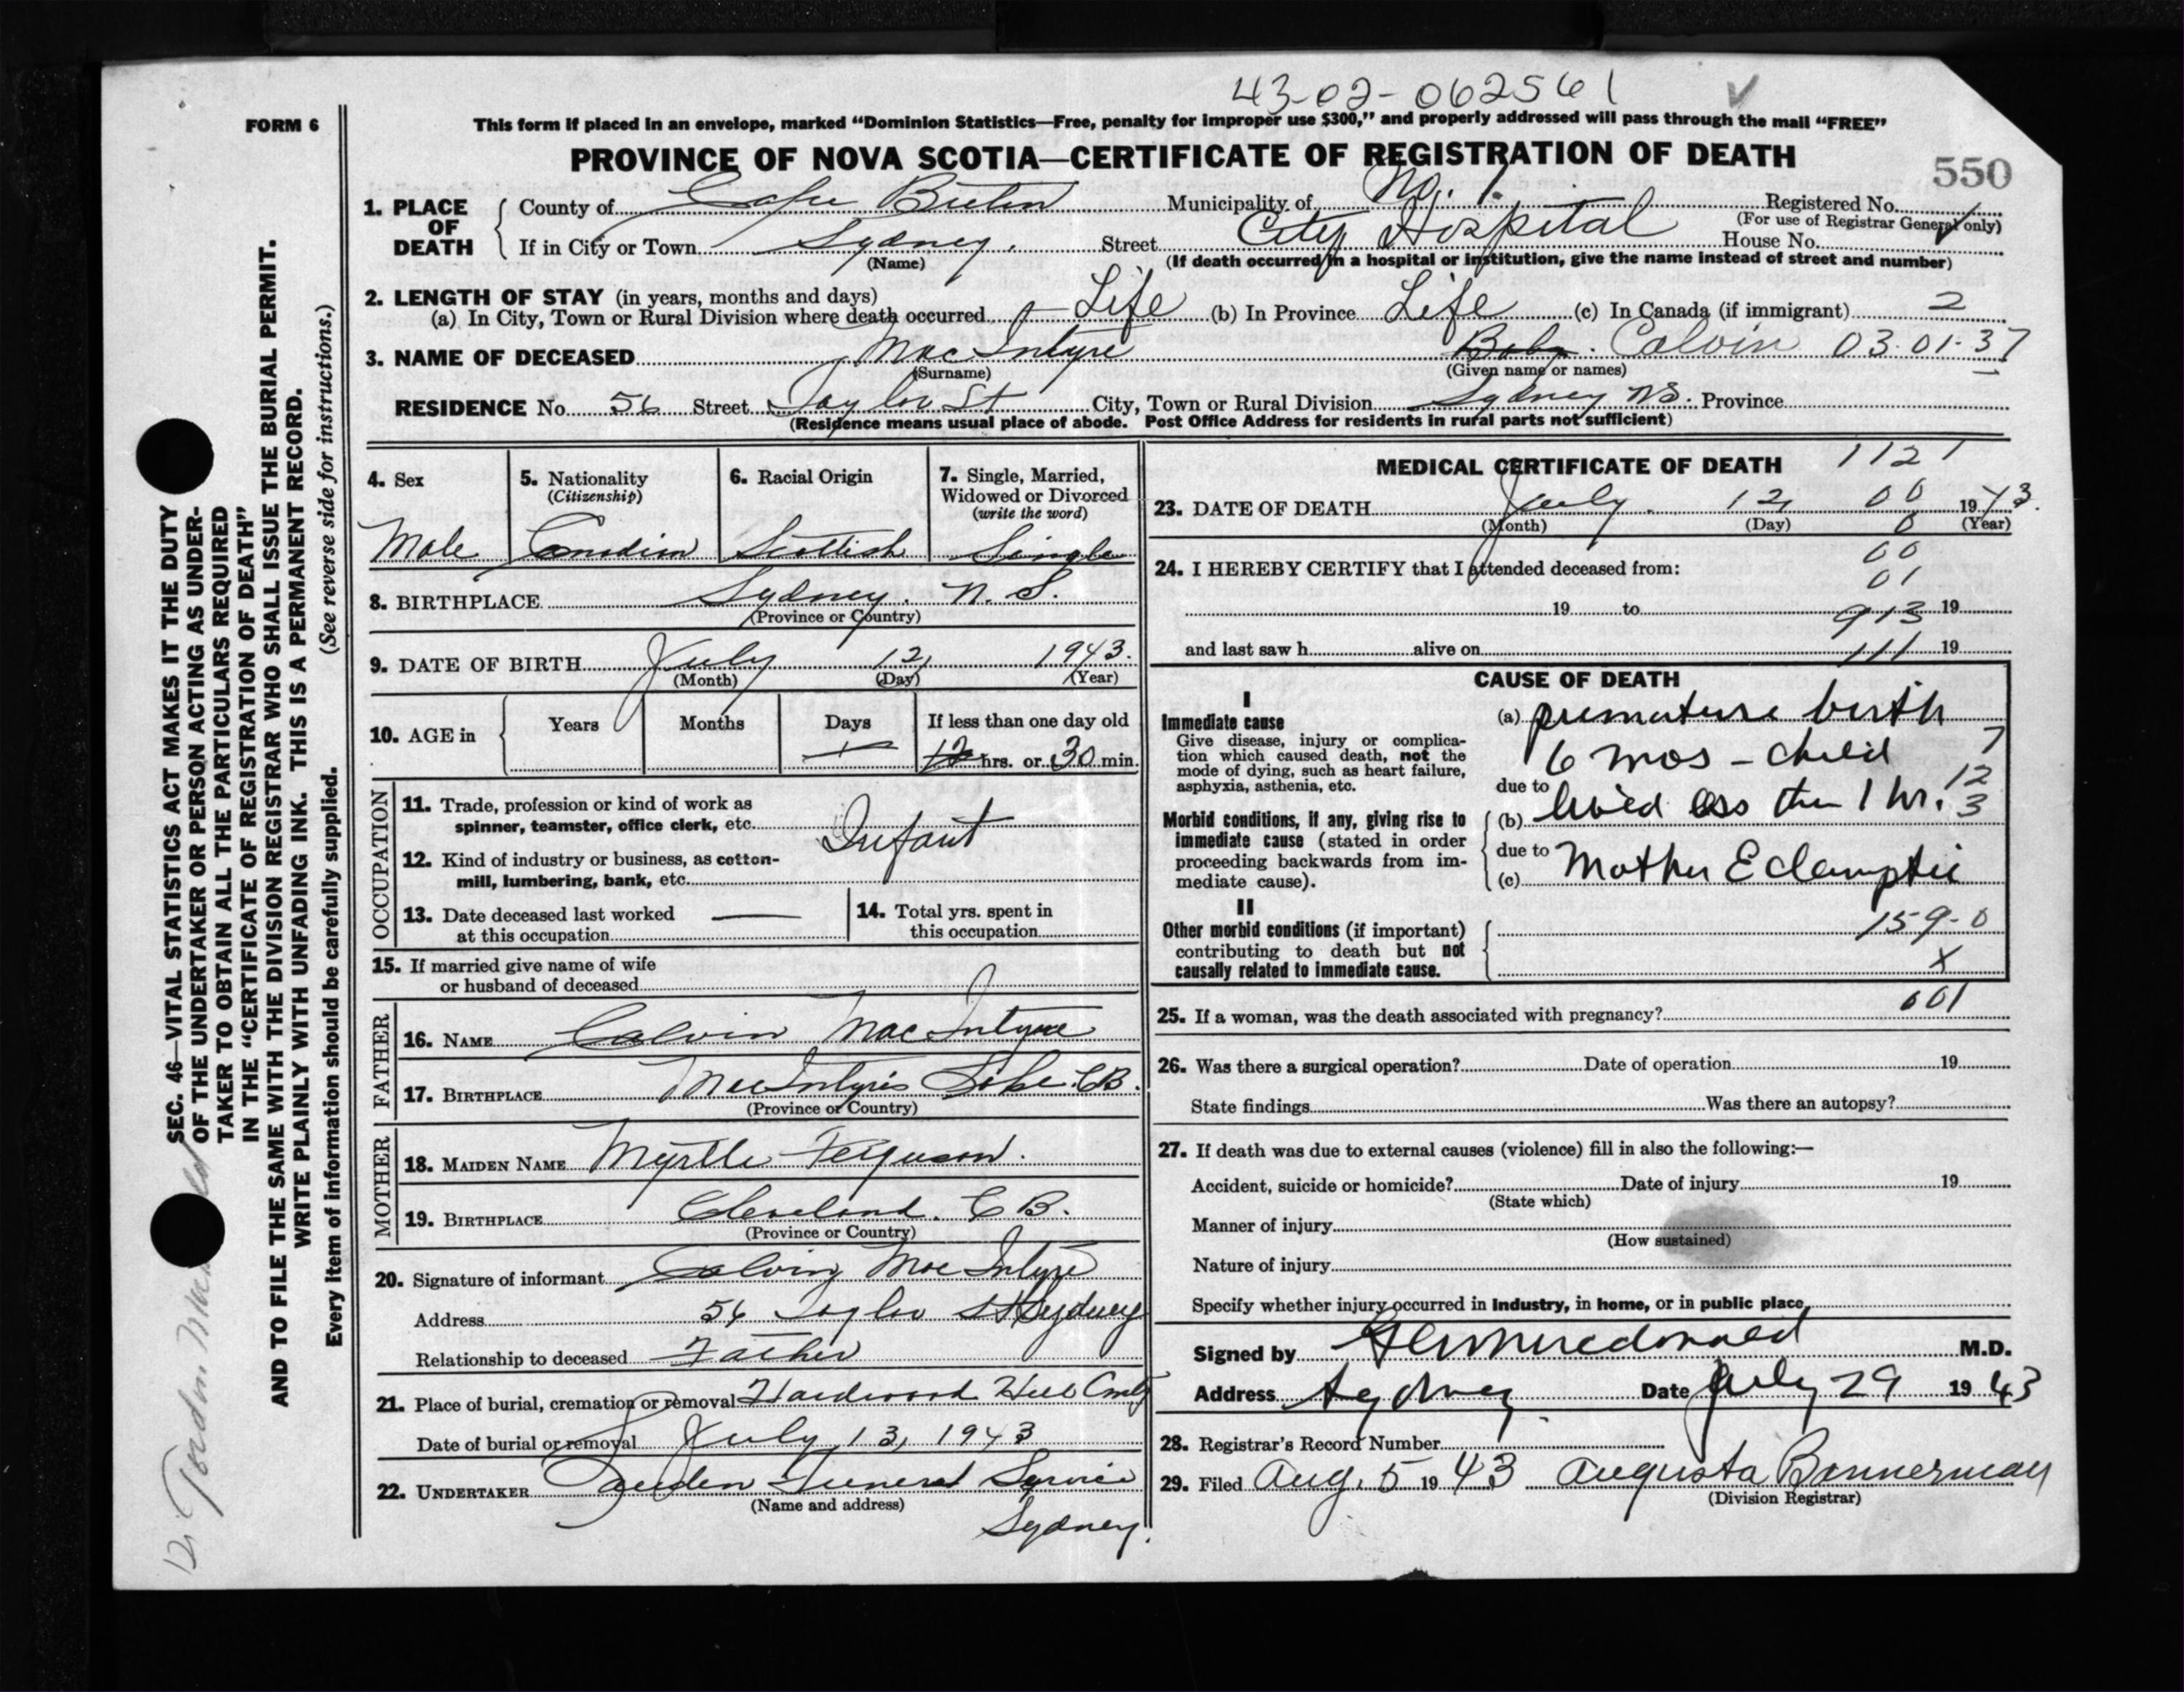 43-02-062561
FORM 6
This form if placed in an envelope, marked “Dominion Statistics—Free, penalty for improper use $300,” and properly addressed will pass through the mail “FREE”
PROVINCE OF NOVA SCOTIA—CERTIFICATE OF REGISTRATION OF DEATH
550
1. PLACE OF DEATH { County of Cape Breton Municipality of No. 1. Registered No.
(For use of Registrar General only)
If in City or Town Sydney. Street City Hospital House No.
(Name) (If death occurred in a hospital or institution, give the name instead of street and number)
2. LENGTH OF STAY (in years, months and days)
(a) In City, Town or Rural Division where death occurred Life (b) In Province Life (c) In Canada (if immigrant) 2
3. NAME OF DECEASED MacIntyre Baby. Calvin 03.01.37
(Surname) (Given name or names)
RESIDENCE No. 56 Street Taylor St City, Town or Rural Division Sydney NS. Province
(Residence means usual place of abode. Post Office Address for residents in rural parts not sufficient)
4. Sex
Male
5. Nationality
(Citizenship)
Canadian
6. Racial Origin
Scottish
7. Single, Married,
Widowed or Divorced
(write the word)
Single
8. BIRTHPLACE Sydney. N. S.
(Province or Country)
9. DATE OF BIRTH July 12, 1943.
(Month) (Day) (Year)
10. AGE in { Years Months Days If less than one day old
12 hrs. or 30 min.
OCCUPATION
11. Trade, profession or kind of work as
spinner, teamster, office clerk, etc. Infant
12. Kind of industry or business, as cotton-
mill, lumbering, bank, etc.
13. Date deceased last worked
at this occupation
14. Total yrs. spent in
this occupation
15. If married give name of wife
or husband of deceased
FATHER
16. NAME Calvin MacIntyre
17. BIRTHPLACE MacIntyres Lake CB.
(Province or Country)
MOTHER
18. MAIDEN NAME Myrtle Ferguson.
19. BIRTHPLACE Cleveland. C B.
(Province or Country)
20. Signature of informant Calvin MacIntyre
Address 56 Taylor St Sydney
Relationship to deceased Father
21. Place of burial, cremation or removal Hardwood Hill Cmty
Date of burial or removal July 13, 1943
22. UNDERTAKER Funeral Service
(Name and address)
Sydney.
MEDICAL CERTIFICATE OF DEATH 1121
23. DATE OF DEATH July. 12, 00 1943.
(Month) (Day) 0 (Year)
00
24. I HEREBY CERTIFY that I attended deceased from:
01
19 to 913 19
and last saw h alive on 111 19
CAUSE OF DEATH
I
Immediate cause
Give disease, injury or complica-
tion which caused death, not the
mode of dying, such as heart failure,
asphyxia, asthenia, etc.
(a) premature birth
6 mos - child 7
due to
12
Morbid conditions, if any, giving rise to
immediate cause (stated in order
proceeding backwards from im-
mediate cause).
(b) lived less then 1 hr. 3
due to
(c) Mother Eclamptic
II
Other morbid conditions (if important)
contributing to death but not
causally related to immediate cause.
159-0
X
001
25. If a woman, was the death associated with pregnancy?
26. Was there a surgical operation? Date of operation 19
State findings Was there an autopsy?
27. If death was due to external causes (violence) fill in also the following:—
Accident, suicide or homicide? Date of injury 19
(State which)
Manner of injury
(How sustained)
Nature of injury
Specify whether injury occurred in industry, in home, or in public place
Signed by Macdonald M.D.
Address Sydney. Date July 29 1943
28. Registrar's Record Number
29. Filed Aug. 5 1943 Augusta Bannerman
(Division Registrar)
SEC. 46—VITAL STATISTICS ACT MAKES IT THE DUTY
OF THE UNDERTAKER OR PERSON ACTING AS UNDER-
TAKER TO OBTAIN ALL THE PARTICULARS REQUIRED
IN THE “CERTIFICATE OF REGISTRATION OF DEATH”
AND TO FILE THE SAME WITH THE DIVISION REGISTRAR WHO SHALL ISSUE THE BURIAL PERMIT.
WRITE PLAINLY WITH UNFADING INK. THIS IS A PERMANENT RECORD.
Every item of information should be carefully supplied. (See reverse side for instructions.)